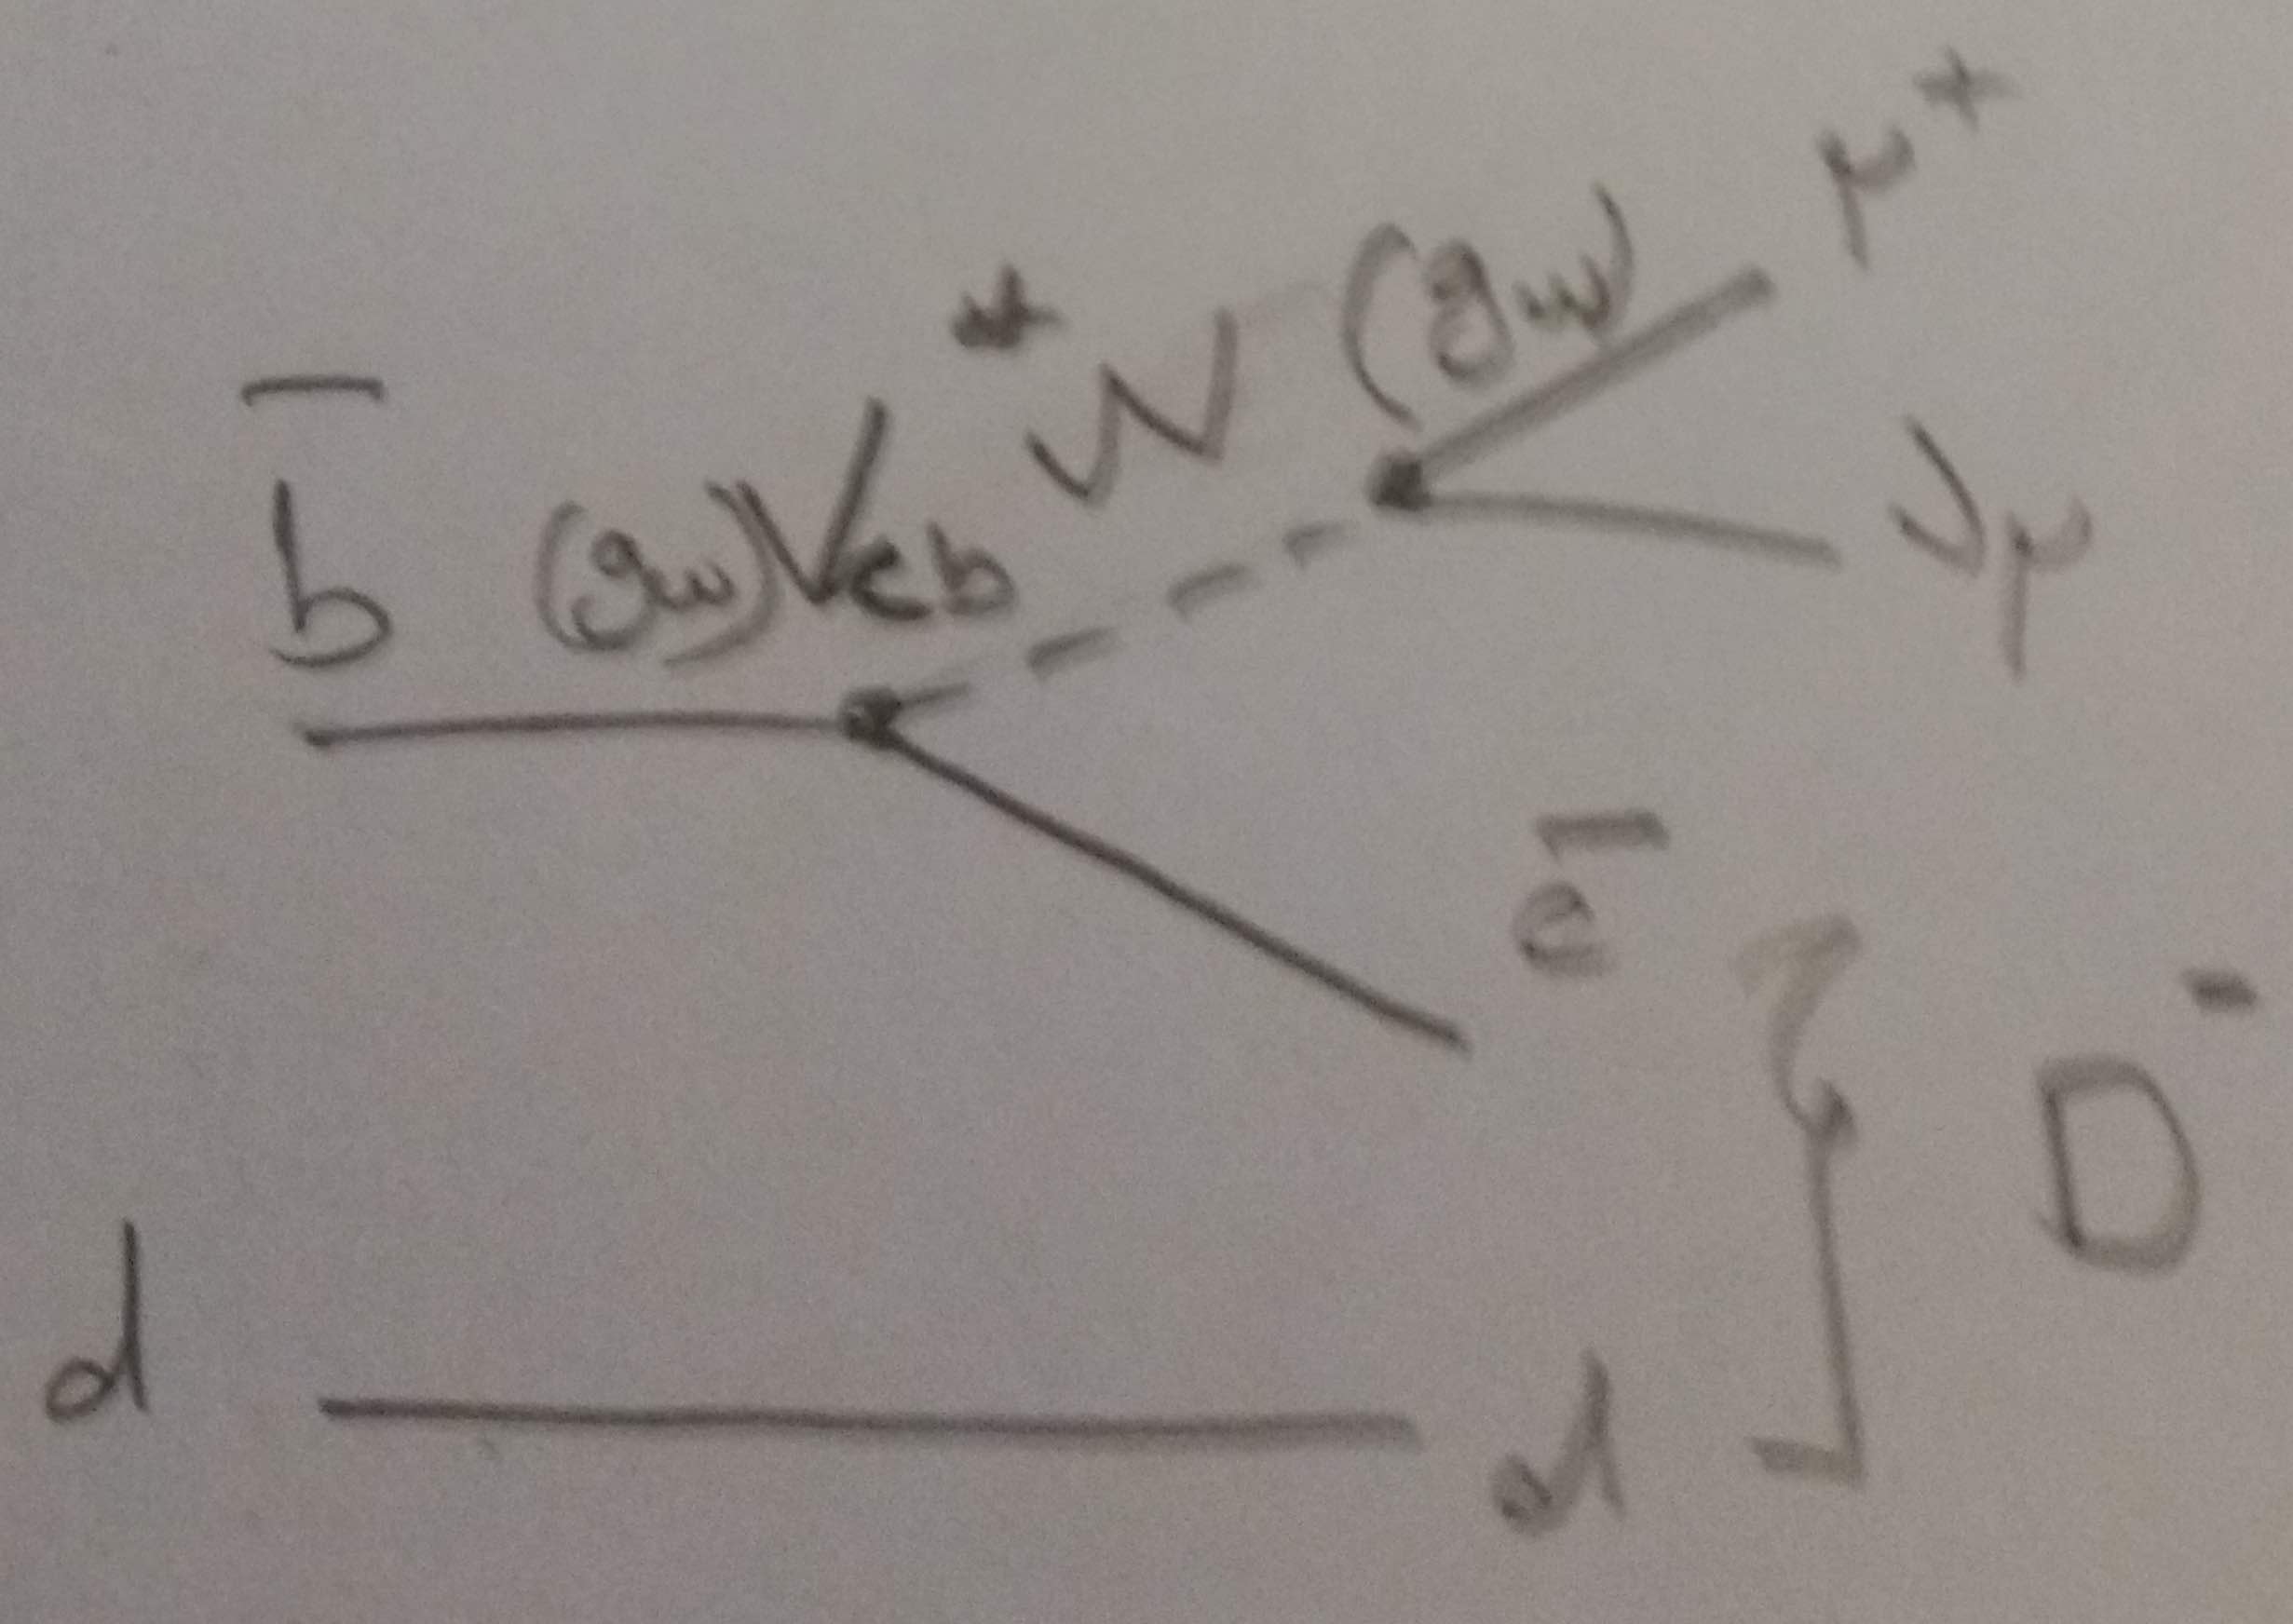 μ⁺
b̄ (gw)Vcb ⁺W (gw)
νμ
c̄
D⁻
d
d